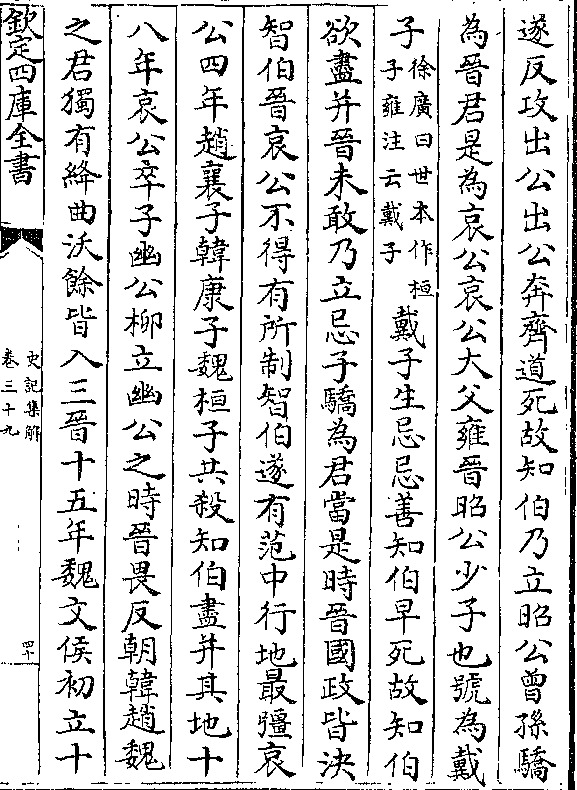 遂反攻出公出公奔齊道死故知伯乃立昭公曾孫驕
為晉君是為哀公哀公大父雍晉昭公少子也號為戴
子
徐廣曰世本作桓
子雍注云戴子
戴子生忌忌善知伯早死故知伯
欲盡并晉未敢乃立忌子驕為君當是時晉國政皆決
智伯晉哀公不得有所制智伯遂有范中行地最彊哀
公四年趙襄子韓康子魏桓子共殺知伯盡并其地十
八年哀公卒子幽公柳立幽公之時晉畏反朝韓趙魏
之君獨有絳曲沃餘皆入三晉十五年魏文侯初立十
欽定四庫全書
史記集解
卷三十九
四十